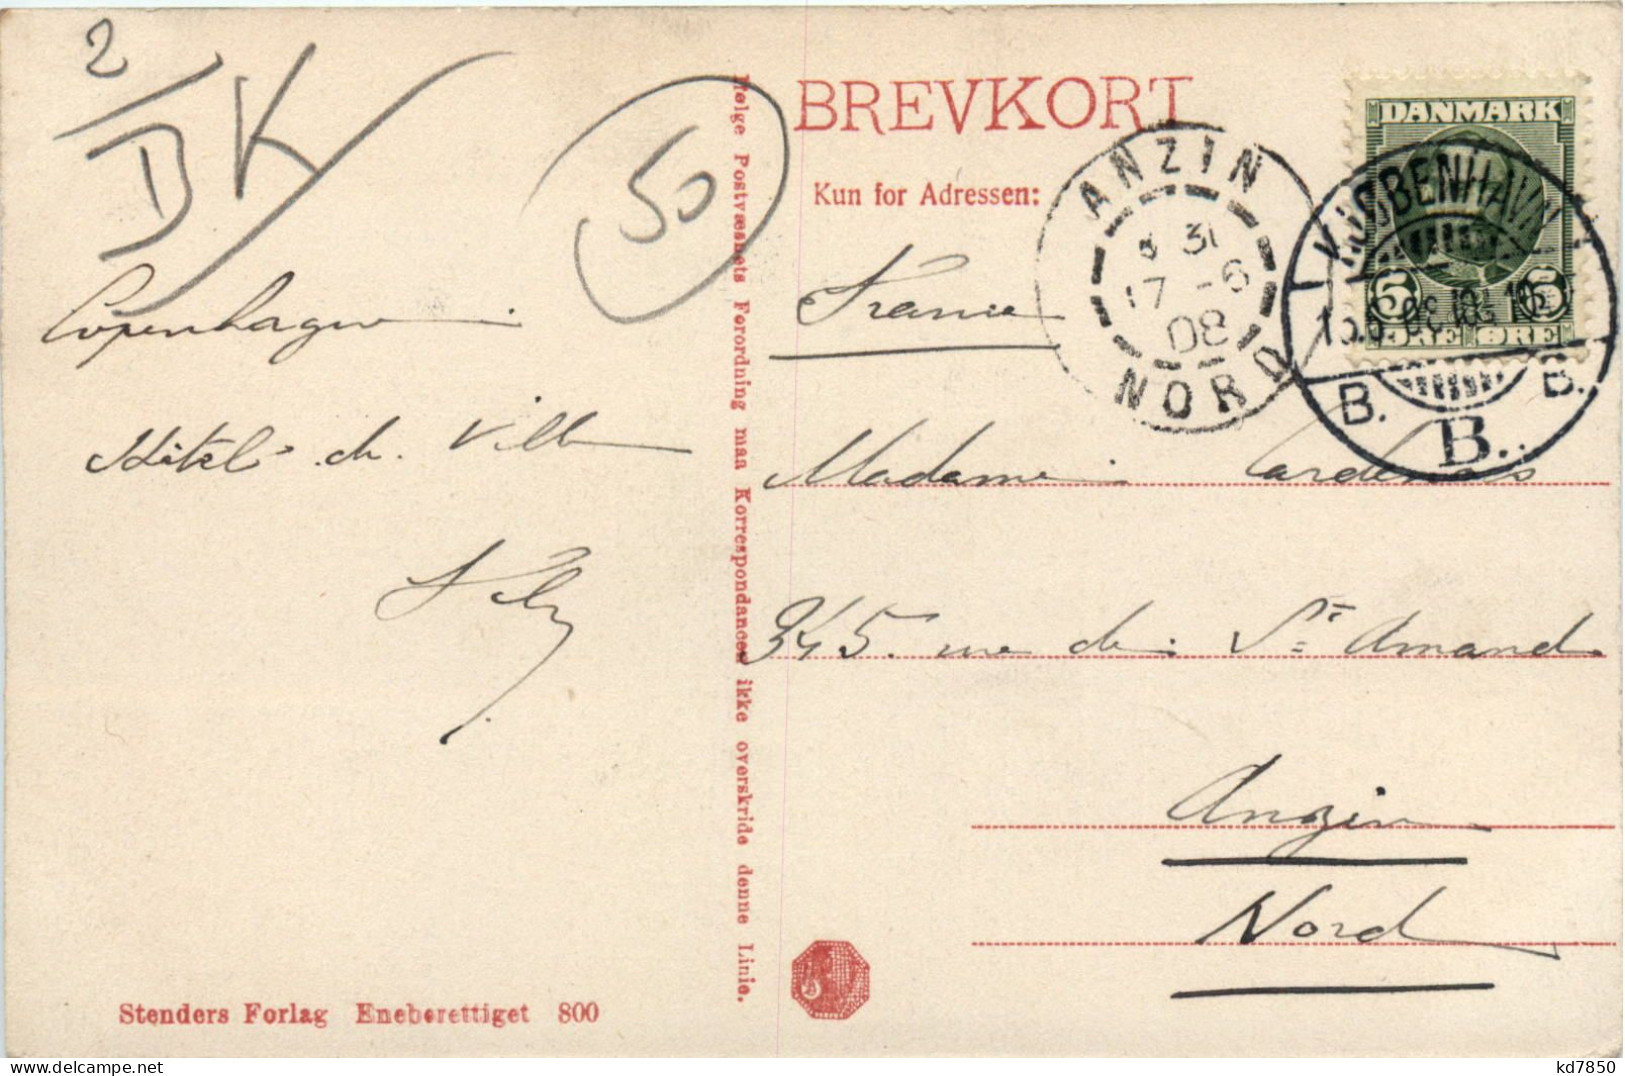 2
DK
50
Copenhagen
Hôtel de Ville
Ifølge Postvæsnets Forordning maa Korrespondancen ikke overskride denne Linie.
BREVKORT
Kun for Adressen:
DANMARK
5 5
ØRE ØRE
ANZIN
31
17 - 6
08
NORD
KJØBENHAVN
B. B.
B.
France
Madame
345. rue de St Amand
Anzin
Nord
Stenders Forlag Eneberettiget 800
kd7850